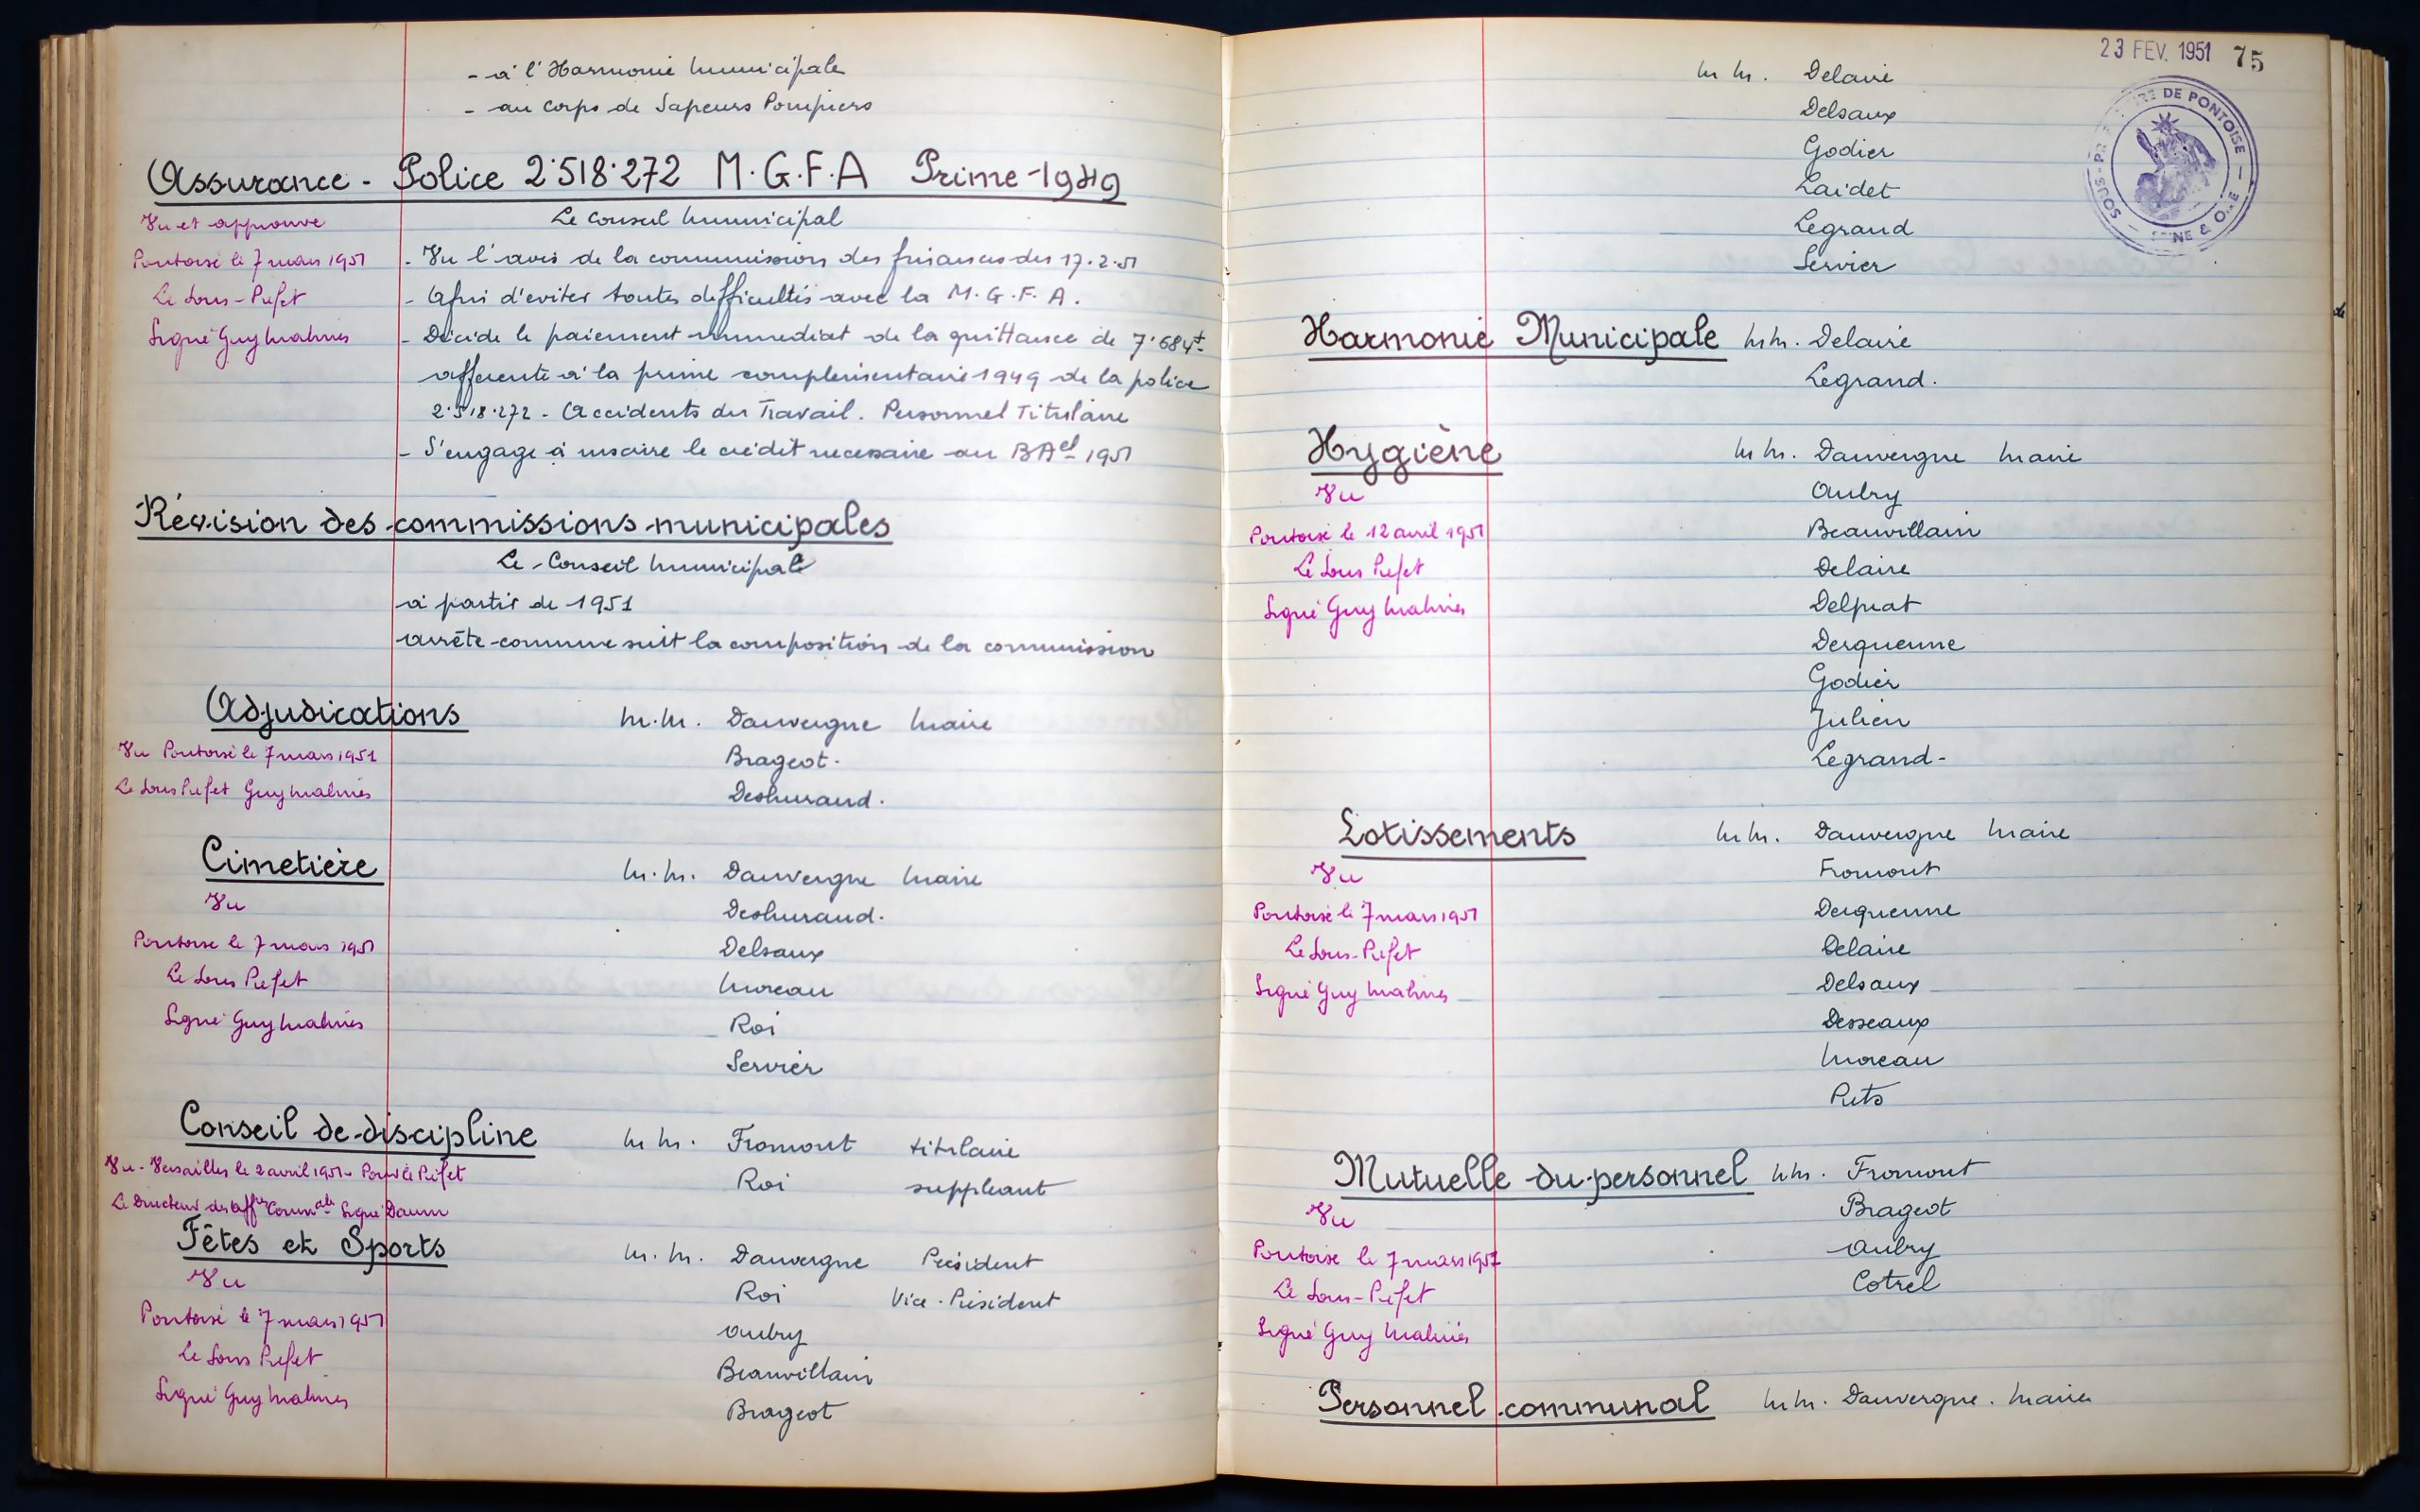 - à l'Harmonie Municipale
- au corps de Sapeurs Pompiers
Assurance - Police 2.518.272 M.G.F.A Prime 1949
Vu et approuvé
Pontoise le 7 mars 1951
Le Sous-Préfet
Signé Guy Malines
Le Conseil Municipal
- Vu l'avis de la commission des finances du 17.2.51
- Afin d'éviter toutes difficultés avec la M.G.F.A.
- Décide le paiement immédiat de la quittance de 7.684f
afférente à la prime complémentaire 1949 de la police
2.518.272 - Accidents du Travail. Personnel Titulaire
- S'engage à inscrire le crédit nécessaire au BAel 1951
Révision des commissions municipales
Le Conseil Municipale
à partir de 1951
arrête comme suit la composition de la commission
Adjudications
Vu Pontoise le 7 mars 1951
Le Sous Préfet Guy Malines
M.M. Dauvergne Maire
Brageot.
Deshurand.
Cimetière
Vu
Pontoise le 7 mars 1951
Le Sous Préfet
Signé Guy Malines
M.M. Dauvergne Maire
Deshurand.
Delsaux
Moreau
Roi
Servier
Conseil de discipline
Vu - Versailles le 2 avril 1951 - Pour le Préfet
Le Directeur des Affres Commales Signé Daum
M M. Fromont titulaire
Roi suppléant
Fêtes et Sports
Vu
Pontoise le 7 mars 1951
Le Sous Préfet
Signé Guy Malines
M.M. Dauvergne Président
Roi Vice-Président
Aubry
Beauvillain
Brageot
23 FEV. 1951 75
SOUS-PRÉ RE DE PONTOISE
M M. Delaire
Delsaux
Godier
Laidet
Legrand
Servier
Harmonie Municipale MM. Delaire
Legrand.
Hygiène
Vu
Pontoise le 12 avril 1951
Le Sous Préfet
Signé Guy Malines
M M. Dauvergne Maire
Aubry
Beauvillain
Delaire
Delprat
Derquenne
Godier
Julien
Legrand-
Lotissements
Vu
Pontoise le 7 mars 1951
Le Sous-Préfet
Signé Guy Malines
M M. Dauvergne Maire
Fromont
Derquenne
Delaire
Delsaux
Desseaux
Moreau
Mutuelle du personnel MM. Fromont
Vu
Pontoise le 7 mars 1951
Le Sous-Préfet
Signé Guy Malines
Brageot
Aubry
Cotrel
Personnel communal MM. Dauvergne. Maire